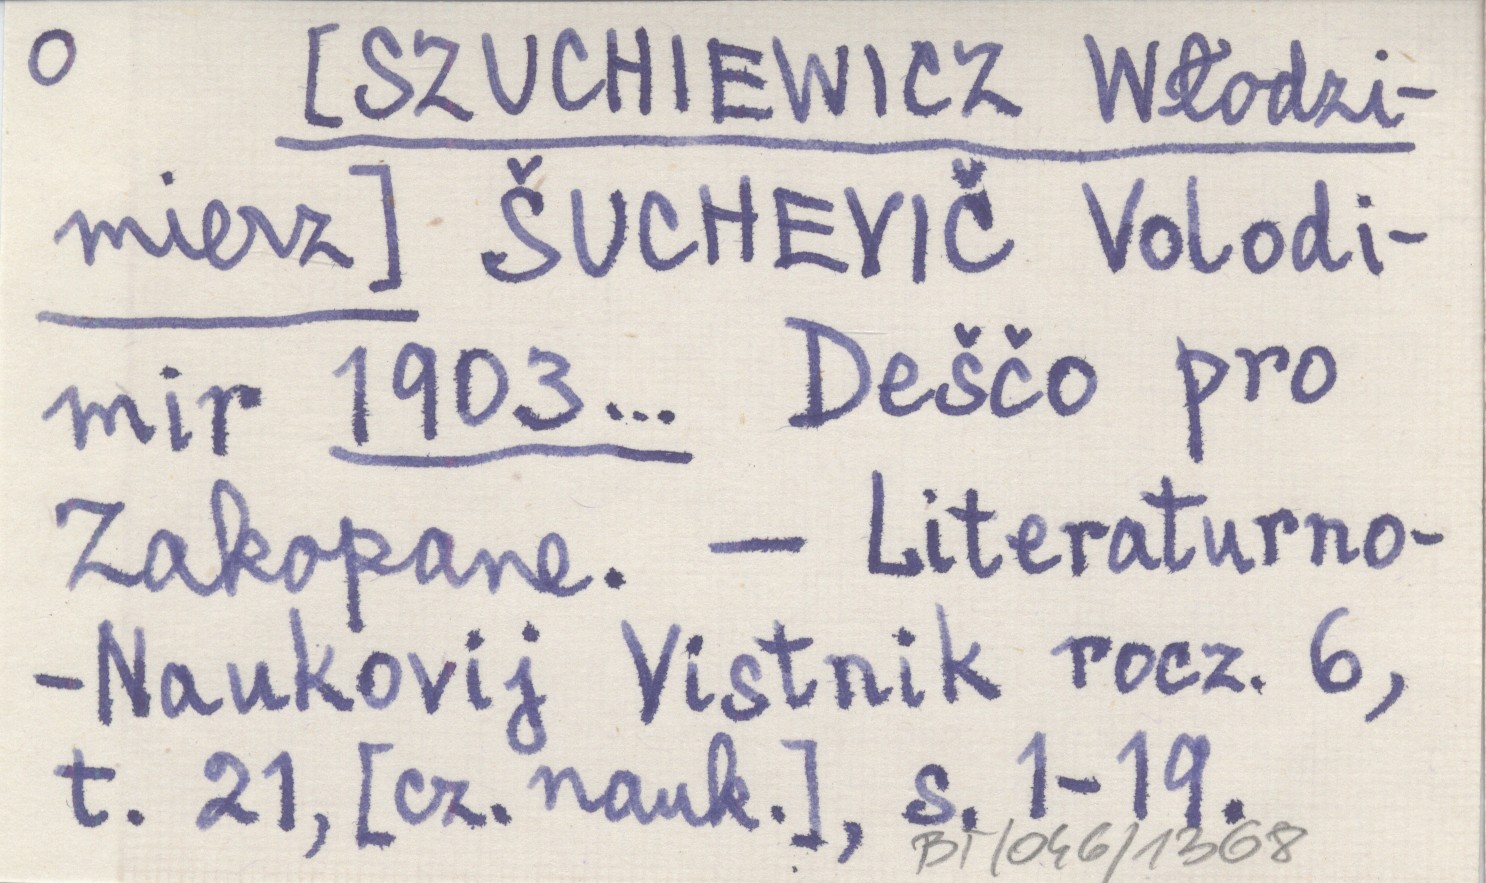 O [SZUCHIEWICZ Włodzi-
mierz] ŠUCHEVIČ Volodi-
mir 1903... Deščo pro
Zakopane. — Literaturno-
-Naukovij Vistnik rocz. 6,
t. 21, [cz. nauk.], s. 1-19.
BT/046/1368